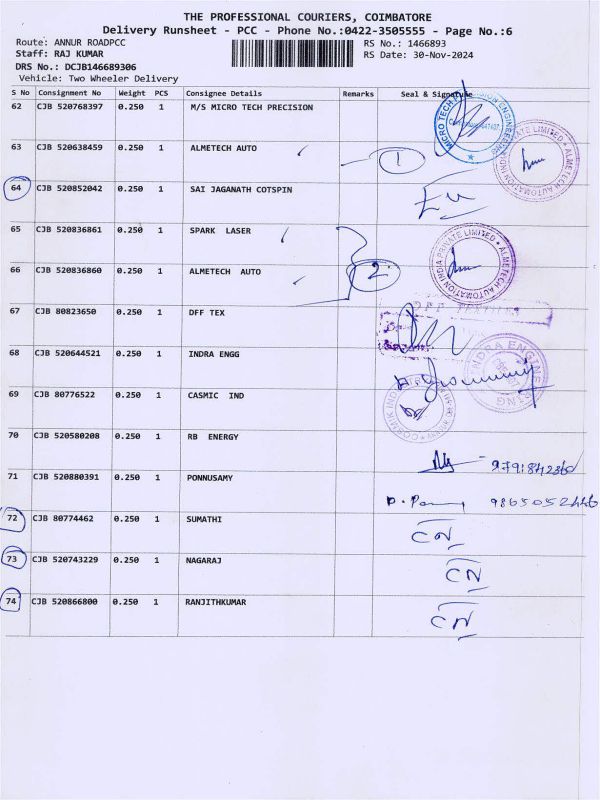 THE PROFESSIONAL COURIERS, COIMBATORE
Delivery Runsheet - PCC - Phone No.:0422-3505555 - Page No.:6
Route: ANNUR ROADPCC RS No.: 1466893
Staff: RAJ KUMAR RS Date: 30-Nov-2024
DRS No.: DCJB146689306
Vehicle: Two Wheeler Delivery
S No Consignment No Weight PCS Consignee Details Remarks Seal & Signature
62 CJB 520768397 0.250 1 M/S MICRO TECH PRECISION
MICRO TECH PRECISION ENGINEERING
63 CJB 520638459 0.250 1 ALMETECH AUTO 1
ALMETECH AUTOMATION INDIA PRIVATE LIMITED
64 CJB 520852042 0.250 1 SAI JAGANATH COTSPIN
65 CJB 520836861 0.250 1 SPARK LASER
ALMETECH AUTOMATION INDIA PRIVATE LIMITED
66 CJB 520836860 0.250 1 ALMETECH AUTO 2
67 CJB 80823650 0.250 1 DFF TEX
68 CJB 520644521 0.250 1 INDRA ENGG
INDRA ENGINEERING
69 CJB 80776522 0.250 1 CASMIC IND
COSMIK INDUSTRIES
70 CJB 520580208 0.250 1 RB ENERGY
71 CJB 520880391 0.250 1 PONNUSAMY
72 CJB 80774462 0.250 1 SUMATHI CN
73 CJB 520743229 0.250 1 NAGARAJ CN
74 CJB 520866800 0.250 1 RANJITHKUMAR CN